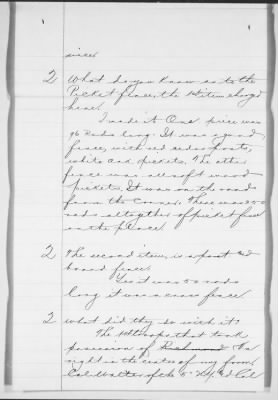 since
2 What do you know as to the
Picket fence, the 1st item charged
here.
I made it. One piece was
96 Rods long. It was a good
fence, with red cedar posts,
white oak pickets. The other
fence was all soft wood
pickets. It was on the road
from the corner. There was 200
rods altogether of picket fence
on the place
2 The second item, is a post and
board fence.
Yes it was 50 rods
long it was a cross fence.
2 what did they do with it?
The 1st troops that took
possession of Richmond The
right in the center of my farm,
Col Walter of the 5"
Col